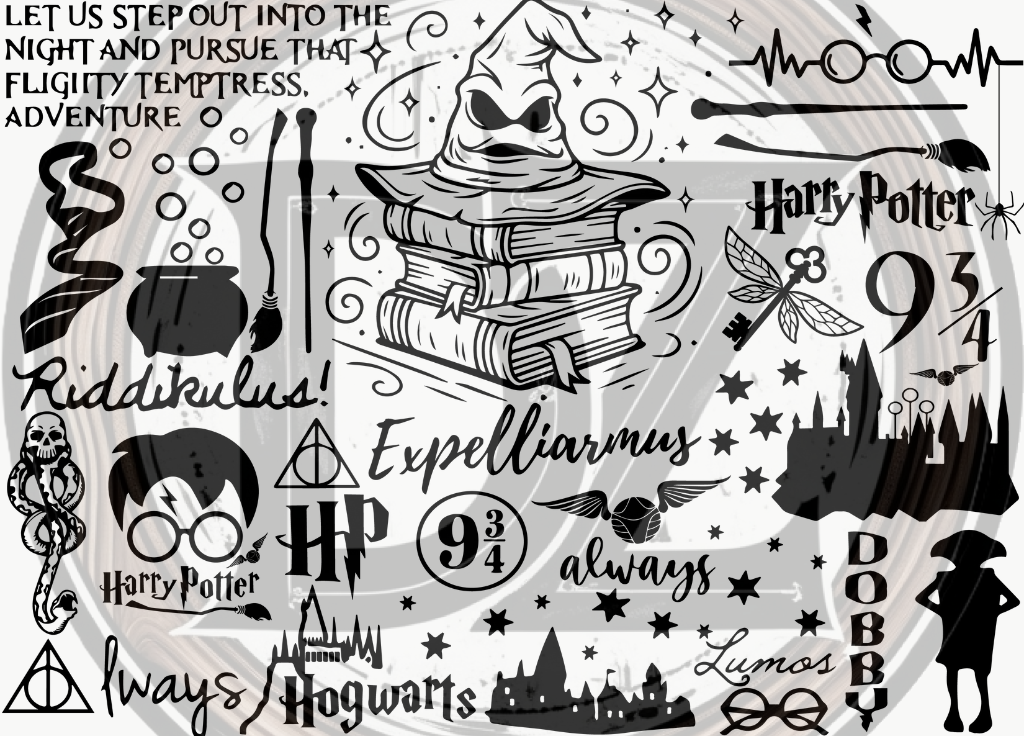 LET US STEP OUT INTO THE
NIGHT AND PURSUE THAT
FLIGHTY TEMPTRESS,
ADVENTURE
Harry Potter
9 3/4
Riddikulus!
Expelliarmus
HP
9 3/4
always
Harry Potter
DOBBY
lways
Hogwarts
Lumos
DZ